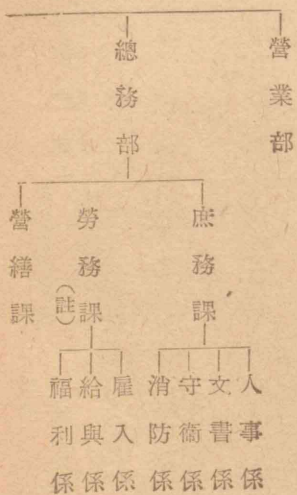 營業部
總務部
庶務課
人事係
文書係
守衞係
消防係
勞務課(註)
雇入係
給與係
福利係
營繕課